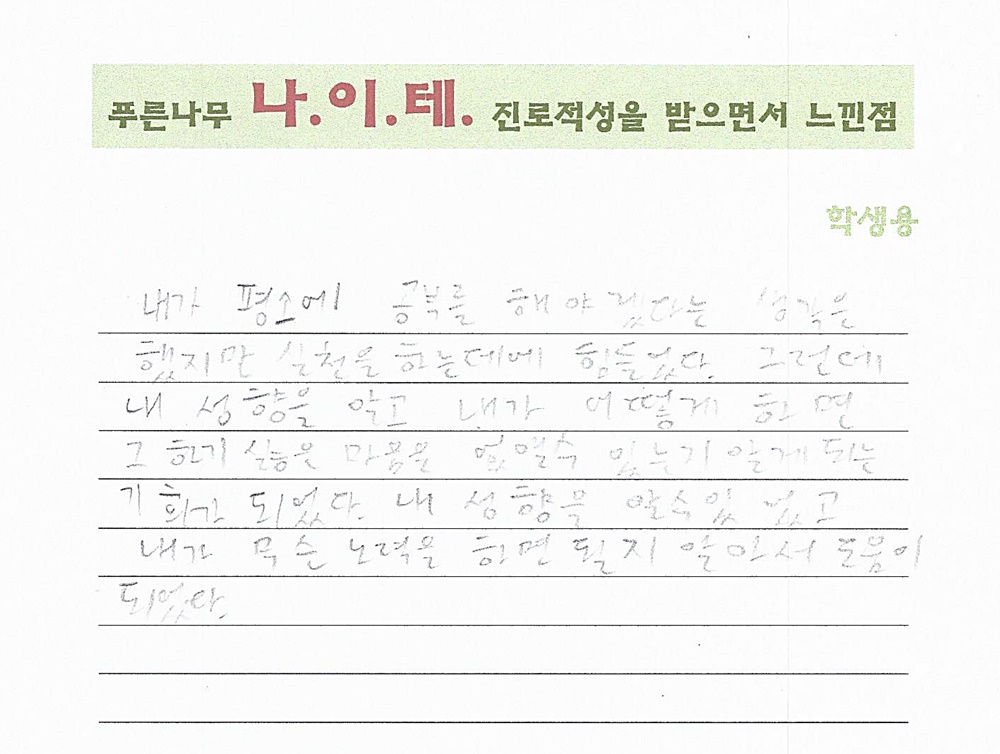 푸른나무 나.이.테. 진로적성을 받으면서 느낀점
학생용
내가 평소에 공부를 해야 겠다는 생각은
했지만 실천을 하는데에 힘들었다. 그런데
내 성향을 알고 내가 어떻게 하면
그 하기 싫은 마음을 없앨수 있는지 알게 되는
기회가 되었다. 내 성향을 알수있 었고
내가 무슨 노력을 하면 될지 알아서 도움이
되었다.